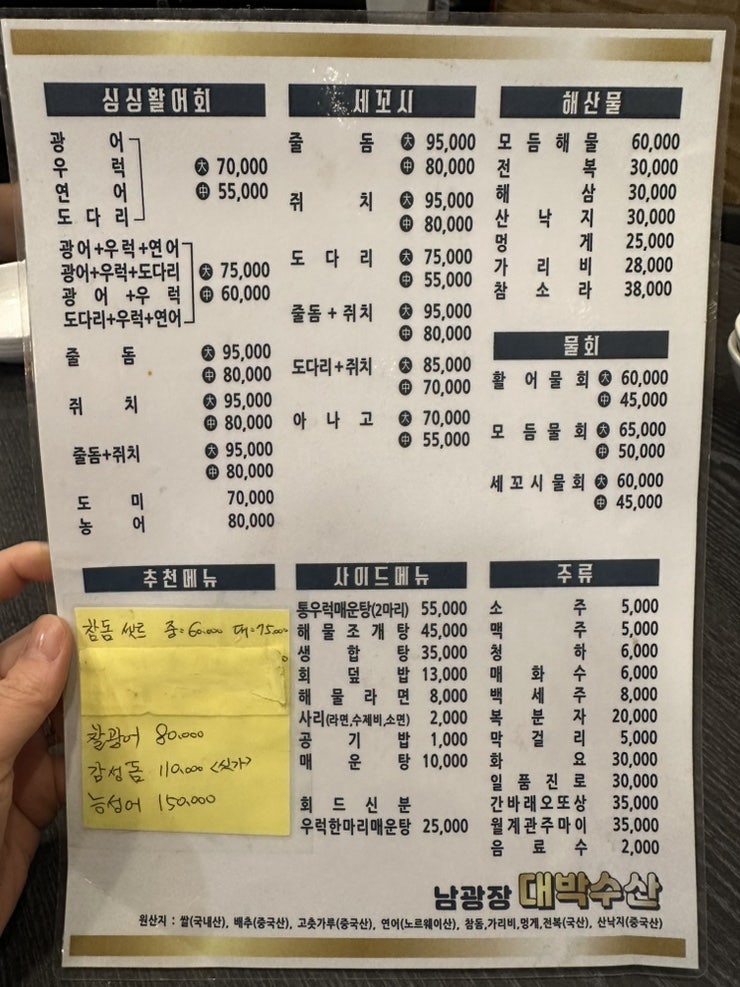 싱싱활어회
광어
우럭
大 70,000
연어
中 55,000
도다리
광어+우럭+연어
광어+우럭+도다리
大 75,000
광어+우럭
中 60,000
도다리+우럭+연어
줄돔 大 95,000
中 80,000
쥐치 大 95,000
中 80,000
줄돔+쥐치 大 95,000
中 80,000
도미 70,000
농어 80,000
세꼬시
줄돔 大 95,000
中 80,000
쥐치 大 95,000
中 80,000
도다리 大 75,000
中 55,000
줄돔+쥐치 大 95,000
中 80,000
도다리+쥐치 大 85,000
中 70,000
아나고 大 70,000
中 55,000
해산물
모듬해물 60,000
전복 30,000
해삼 30,000
산낙지 30,000
멍게 25,000
가리비 28,000
참소라 38,000
물회
활어물회 大 60,000
中 45,000
모듬물회 大 65,000
中 50,000
세꼬시물회 大 60,000
中 45,000
추천메뉴
참돔 셋트 중=60.000 대=75.000
찰광어 80.000
감성돔 110.000 <싯가>
능성어 150.000
사이드메뉴
통우럭매운탕(2마리) 55,000
해물조개탕 45,000
생합탕 35,000
회덮밥 13,000
해물라면 8,000
사리(라면,수제비,소면) 2,000
공기밥 1,000
매운탕 10,000
회드신분
우럭한마리매운탕 25,000
주류
소주 5,000
맥주 5,000
청하 6,000
매화수 6,000
백세주 8,000
복분자 20,000
막걸리 5,000
화요 30,000
일품진로 30,000
간바래오또상 35,000
월계관주마이 35,000
음료수 2,000
남광장 대박수산
원산지 : 쌀(국내산), 배추(중국산), 고춧가루(중국산), 연어(노르웨이산), 참돔,가리비,멍게,전복(국산), 산낙지(중국산)